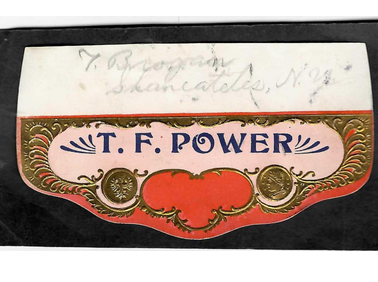 T. Brogan
Skaneateles, N.Y.
T. F. POWER